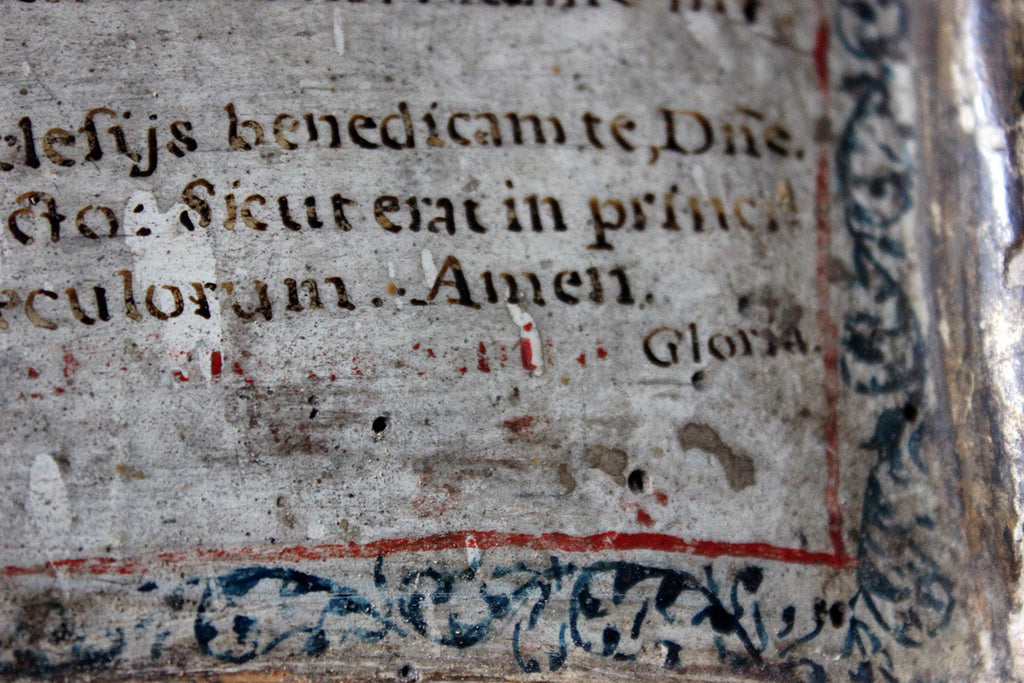 clesijs benedicam te, Dñe.
cto: Sicut erat in princi
eculorum. Amen.
Gloria.